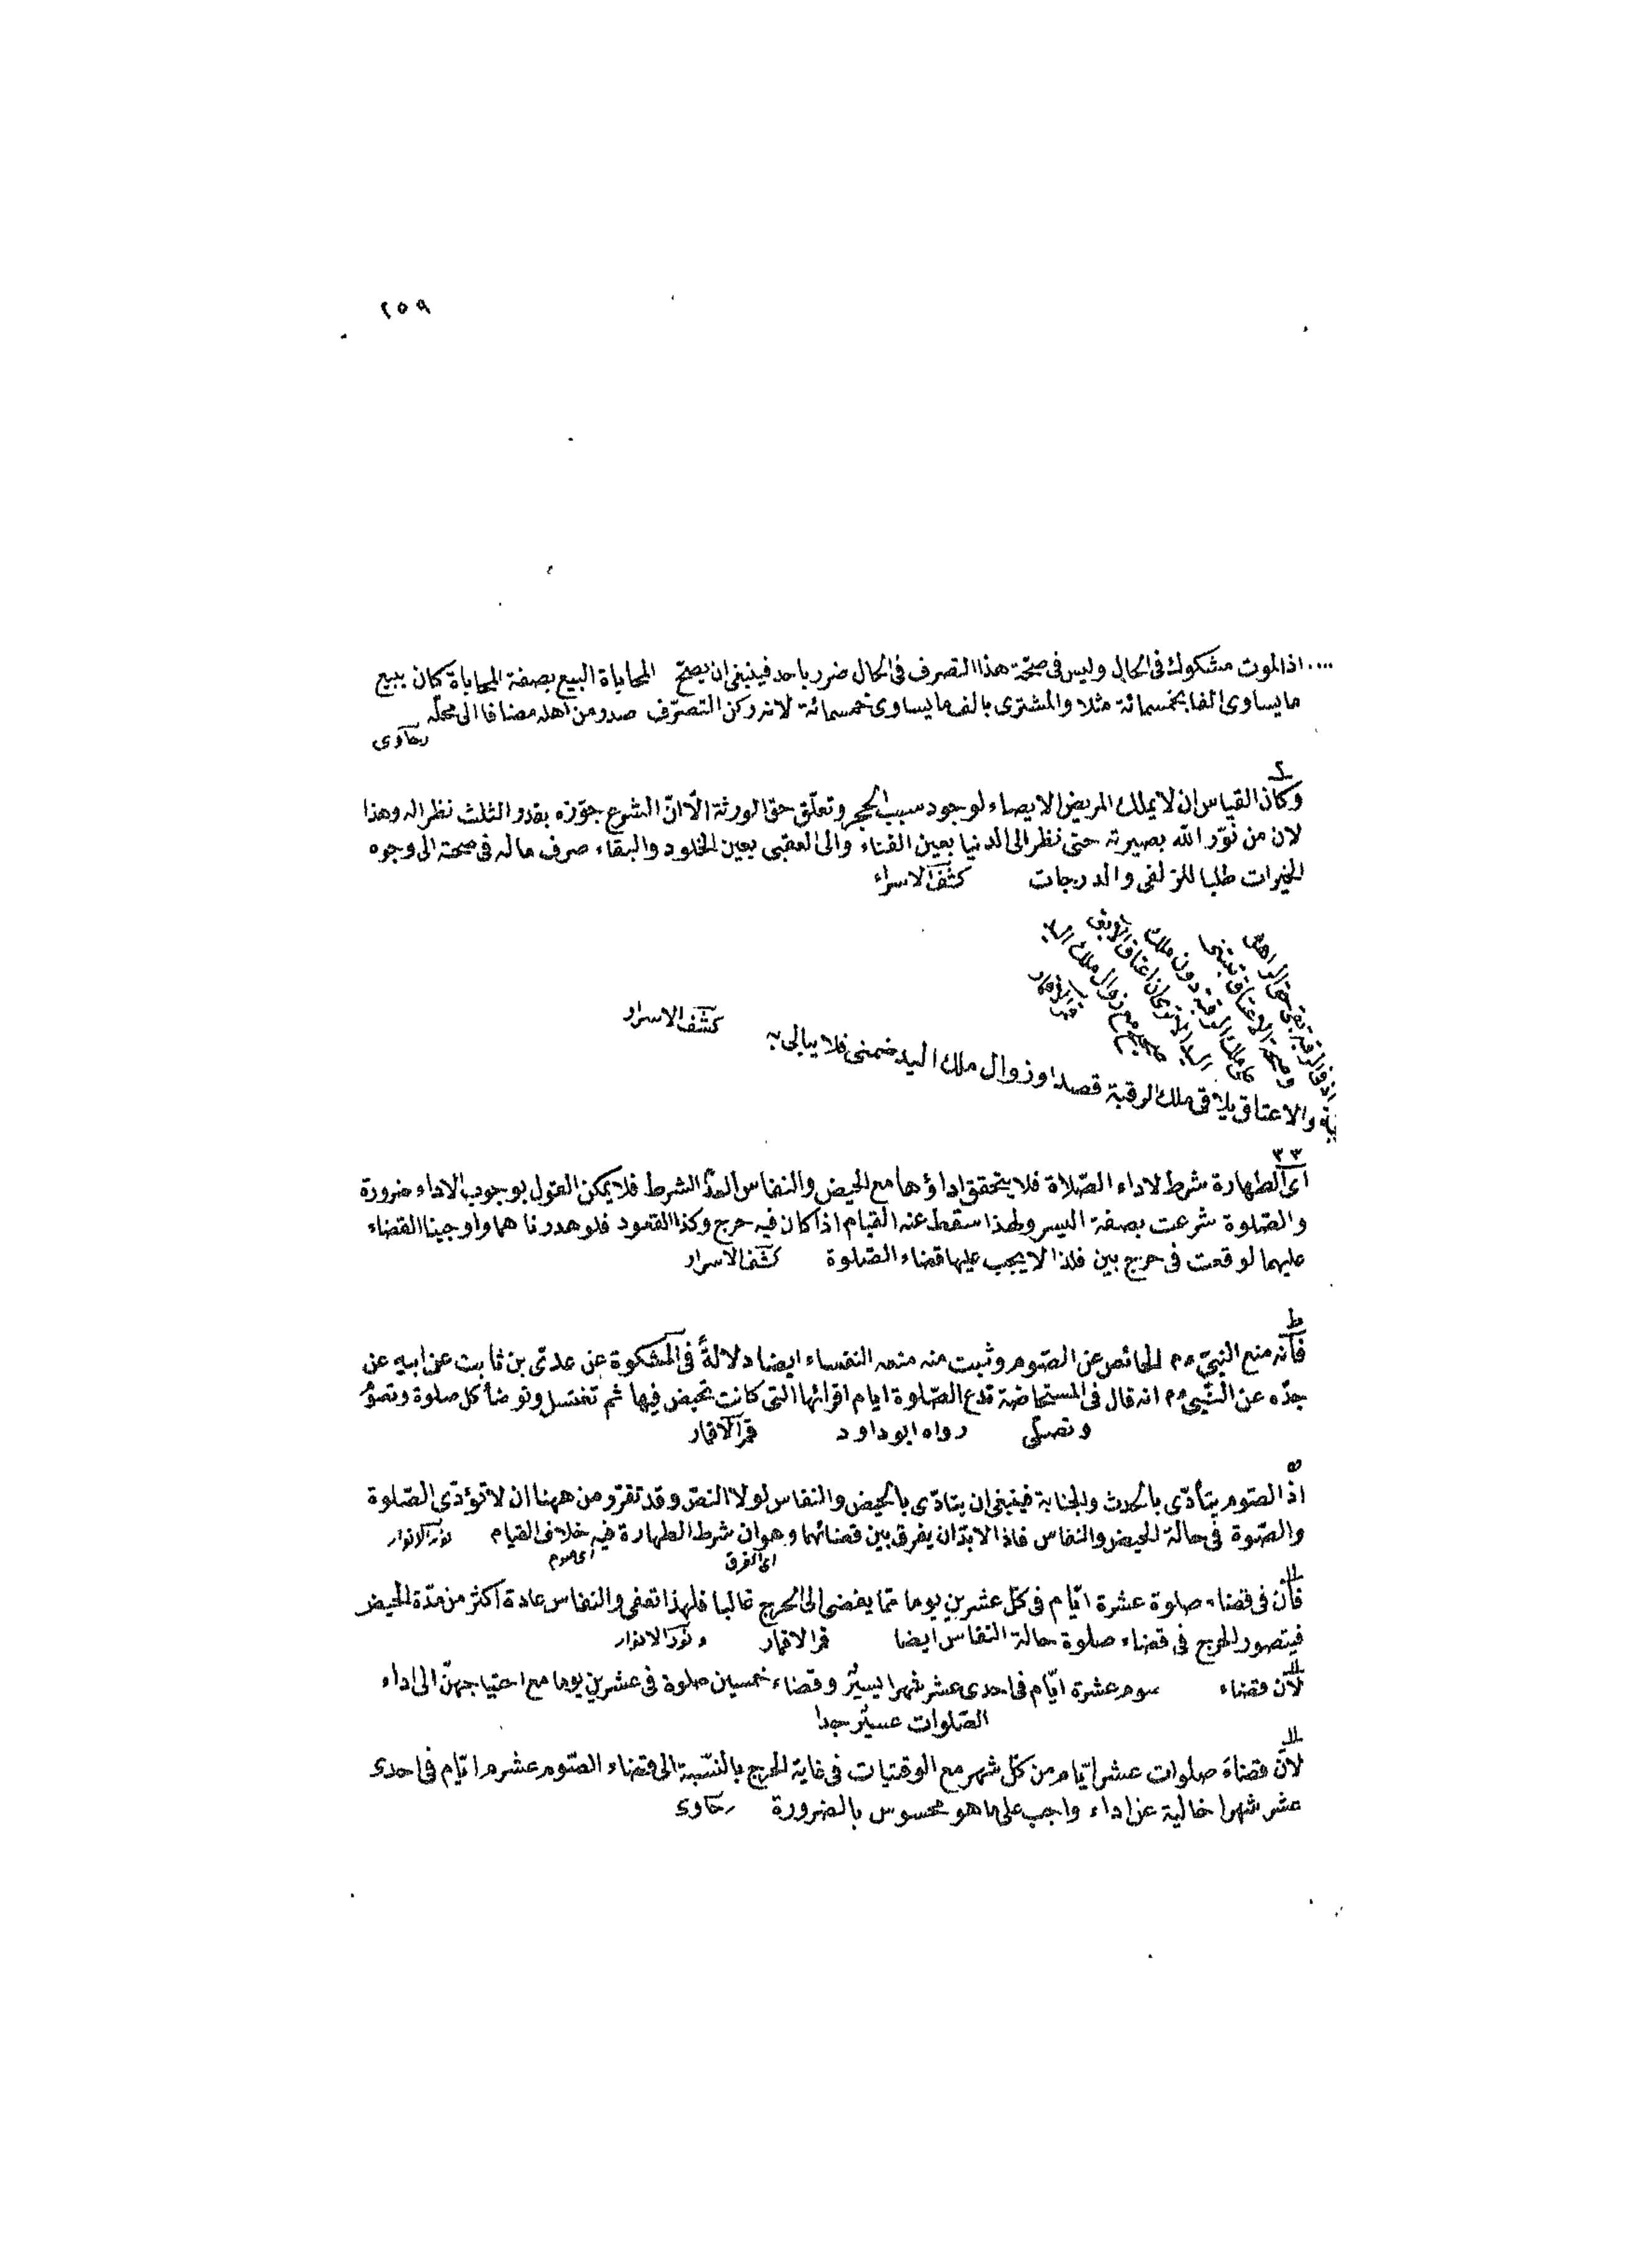 ٢٥٩
.... اذ الموت مشكوك فى الحال وليس فى صحّة هذا التصرف فى الحال ضرر باحد فينبغى ان يصحّ المحاباة البيع بصفة المحاباة كمان يبيع
ما يساوى الفا بخمسمائة مثلا والمشترى بالف ما يساوى خمسمائة لانه ركن التصرّف صدر من اهله مضافا الى محلّه
رهاوى
٢
وكان القياس ان لا يملك المريض الايصاء لوجود سبب الحجر وتعلّق حق الورثة الّا انّ الشرع جوّزه بقدر الثلث نظر اله وهذا
لان من نوّر الله بصيرته حتى نظر الى الدنيا بعين الفناء والى العقبى بعين الخلود والبقاء صرف ماله فى صحته الى وجوه
الخيرات طلبا للزلفى والدرجات كشف الاسرار
اذ فى الرقبة بقى حق الراهن
وصحة الاعتاق تبتنى
على ملك الرقبة دون ملك
اليد الا ترى ان اعتاق الآبق
صحيح مع زوال ملك اليد
قمر الاقمار
والاعتاق يلاقى ملك الرقبة قصدا وزوال ملك اليد ضمنى فلا يبالى به كشف الاسرار
٣٣
اى الطهارة شرط لاداء الصّلاة فلا يتحقق اداؤها مع الحيض والنفاس لهذا الشرط فلا يمكن القول بوجوب الاداء ضرورة
والصّلوة شرعت بصفة اليسر ولهذا سقط عنه القيام اذا كان فيه حرج وكذا القعود فلو هدرنا هما واوجبنا القضاء
عليهما لوقعت فى حرج بين فلذا لا يجب عليها قضاء الصّلوة كشف الاسرار
ط
فأنّه منع النبىّ ءم الحائض عن الصّوم وثبت منه منعه النفساء ايضا دلالةً فى المشكوة عن عدىّ بن ثابت عن ابيه عن
جدّه عن النّبىّ ءم انه قال فى المستحاضة تدع الصّلوة ايام اقرائها التى كانت تحيض فيها ثم تغتسل وتوضأ كل صلوة وتصوُم
وتصلّى رواه ابو داود قمر الاقمار
ه
اذ الصّوم يتأدّى بالحدث والجنابة فينبغى ان يتادّى بالحيض والنفاس لولا النصّ وقد تقرّر من ههنا ان لا تؤدّى الصّلوة
والصّوة فى حالة الحيض والنفاس فاذا لابدّ ان يفرق بين قضائهما وهو ان شرط الطهارة فيه خلاف القيام نور الانوار
اى الفرق اى صوم
فأنّ فى قضاء صلوة عشرة ايّام فى كلّ عشرين يوما ممّا يفضى الى الحرج غالبا فلهذا تعفى والنفاس عادة اكثر من مدّة الحيض
فيتصور الحرج فى قضاء صلوة حالة النفاس ايضا قمر الاقمار ونور الانوار
لأنّ قضاء سوم عشرة ايّام فى احدى عشر شهرا يسيُر وقضاء خمسين صلوة فى عشرين يوما مع احتياجهنّ الى اداء
الصّلوات عسيُر جدا
لأنّ قضاءَ صلوات عشر ايّام من كلّ شهر مع الوقتيات فى غاية الحرج بالنّسبة الى قضاء الصّوم عشرم ايّام فى احدى
عشر شهرا خالية عن اداء واجب على ما هو محسوس بالضرورة رهاوى